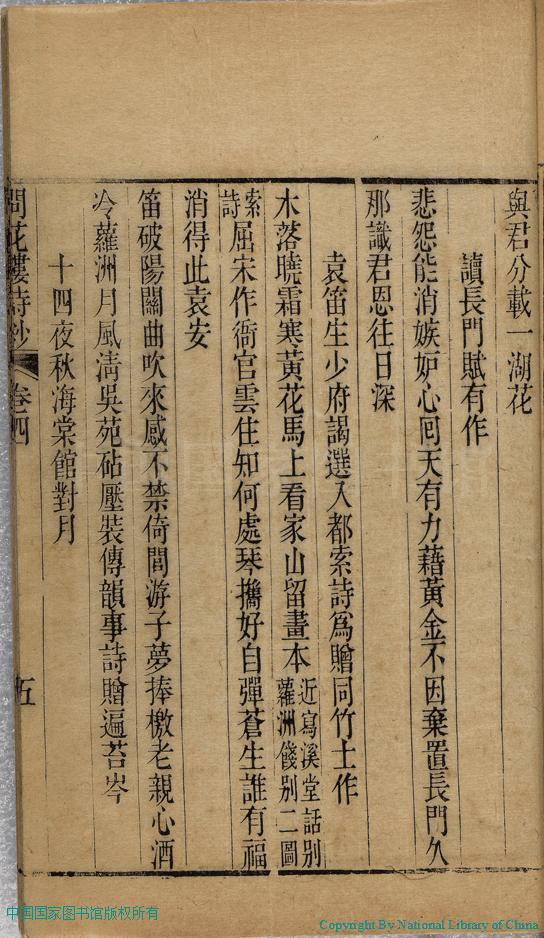 與君分載一湖花
讀長門賦有作
悲怨能消嫉妒心回天有力藉黃金不因棄置長門久
那識君恩往日深
袁笛生少府謁選入都索詩爲贈同竹士作
木落曉霜寒黃花馬上看家山留畫本近寫溪堂話別蘿洲餞別二圖
索詩屈宋作衙官雲住知何處琴攜好自彈蒼生誰有福
消得此袁安
笛破陽關曲吹來感不禁倚閭游子夢捧檄老親心酒
冷蘿洲月風淸吳苑砧壓裝傳韻事詩贈遍苔岑
十四夜秋海棠館對月
問花樓詩鈔 卷四 五
中国国家图书馆版权所有
Copyright By National Library of China